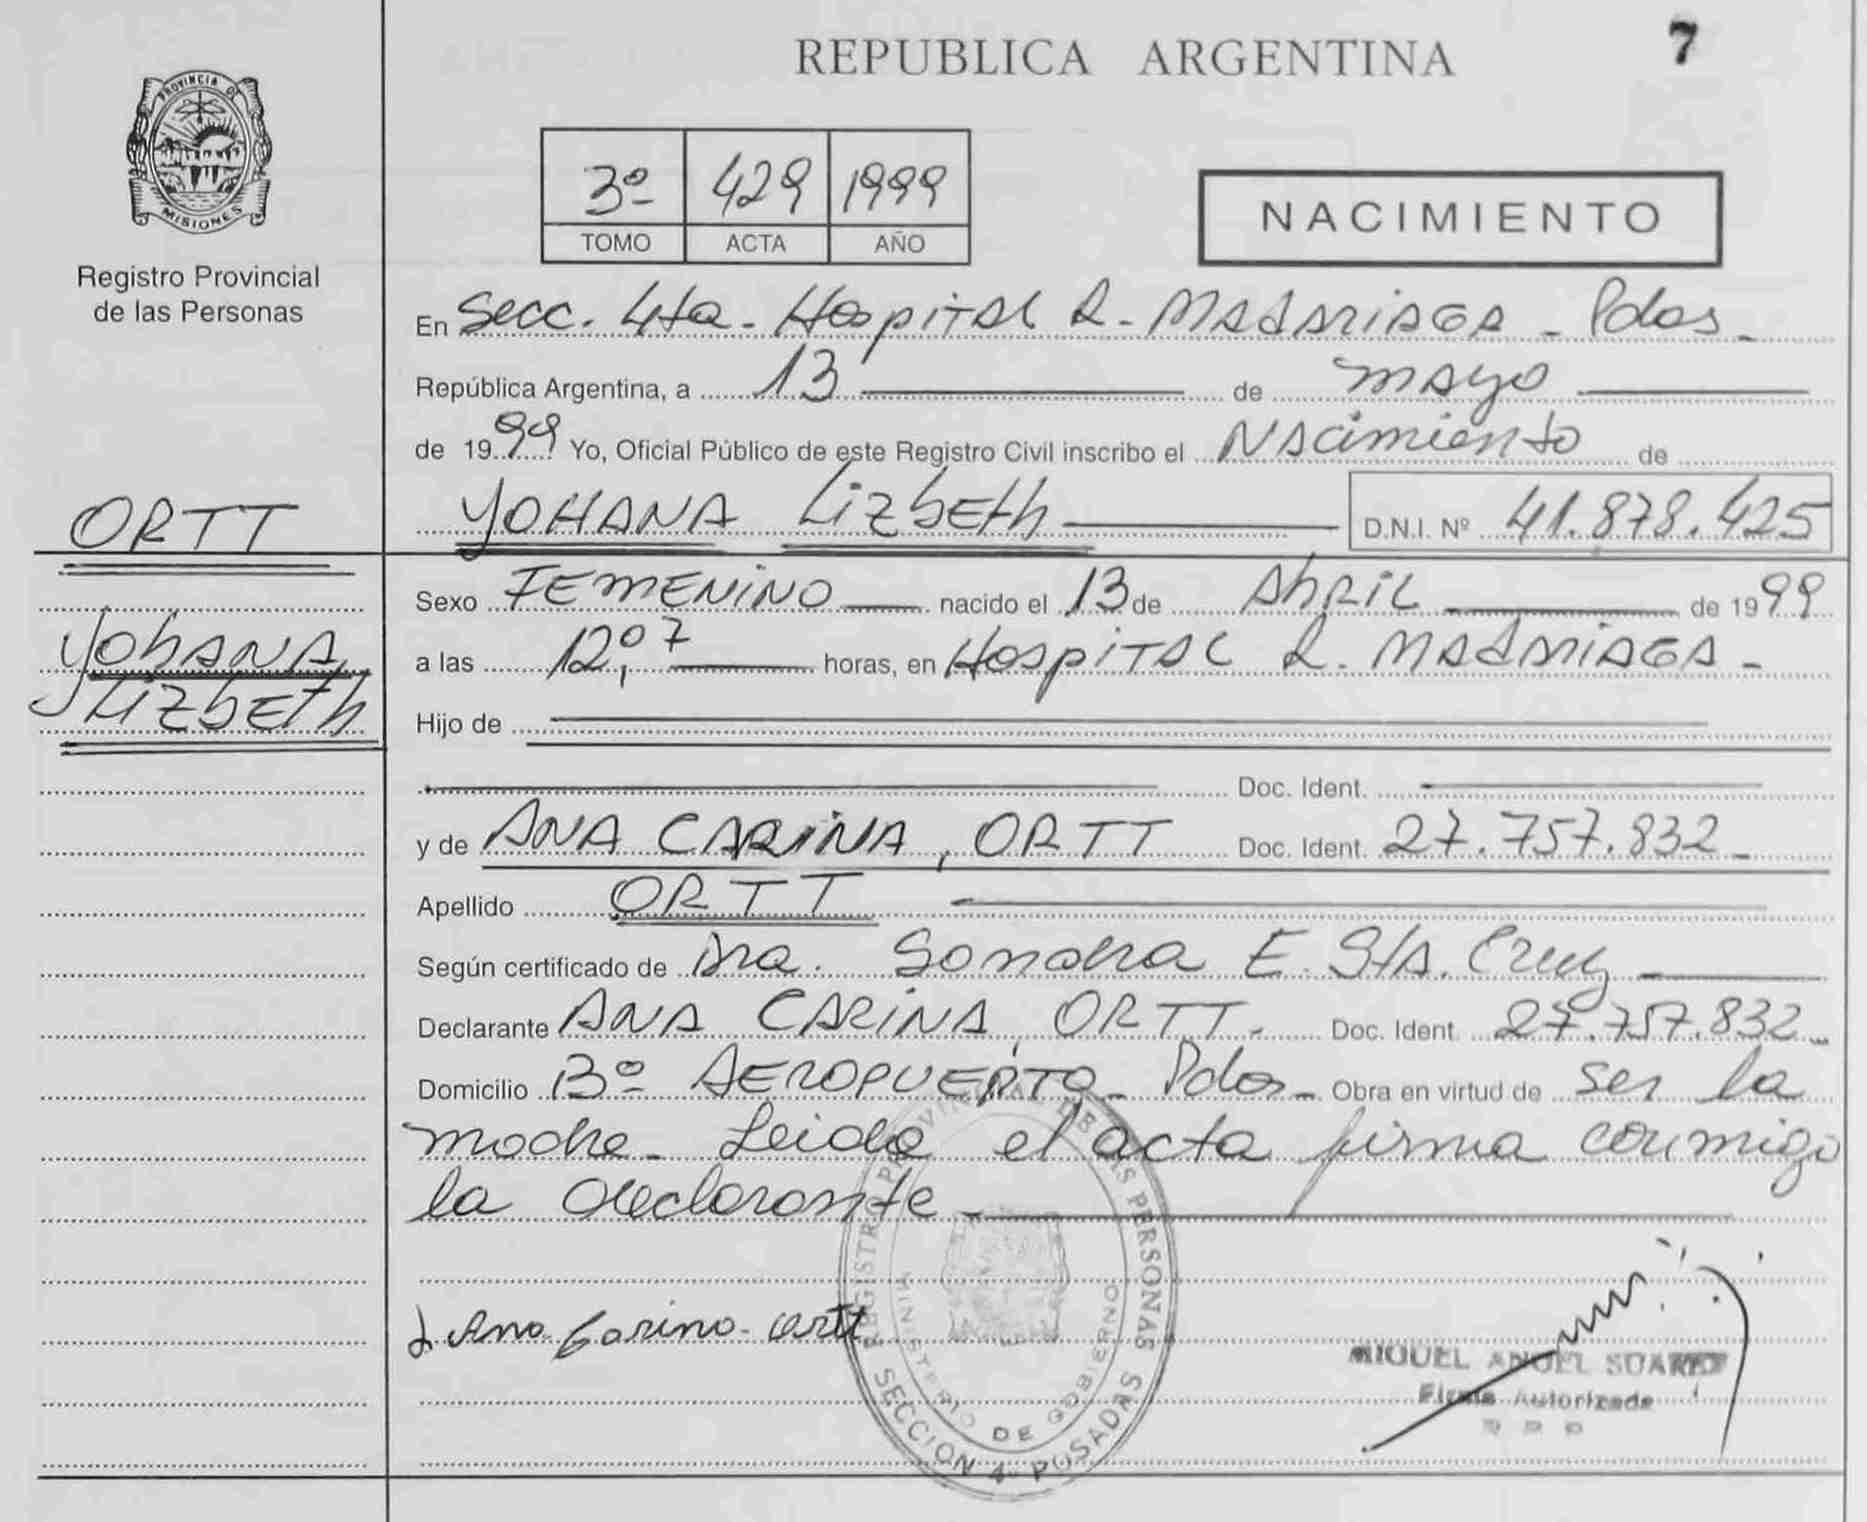 REPUBLICA ARGENTINA
7
PROVINCIA DE
MISIONES
Registro Provincial
de las Personas
3º 429 1999
TOMO ACTA AÑO
NACIMIENTO
En Secc. 4ta - Hospital R. Madariaga - Pdas -
República Argentina, a 13 de mayo
de 1999 Yo, Oficial Público de este Registro Civil inscribo el Nacimiento de
YOHANA Lizbeth D.N.I. Nº 41.878.425
ORTT
Yohana
Lizbeth
Sexo FEMENINO nacido el 13 de Abril de 1999
a las 12,07 horas, en Hospital R. Madariaga -
Hijo de
Doc. Ident.
y de ANA CARINA, ORTT Doc. Ident. 27.757.832
Apellido ORTT
Según certificado de Dra. Sandra E. Sta. Cruz
Declarante ANA CARINA, ORTT. Doc. Ident. 27.757.832
Domicilio Bº AEROPUERTO - Pdas - Obra en virtud de ser la
madre - Leida el acta firma conmigo
la declarante -
Ana Carina Ortt
REGISTRO PROVINCIAL DE LAS PERSONAS
MINISTERIO DE GOBIERNO
SECCION 4ª POSADAS
MIGUEL ANGEL SUAREZ
Firma Autorizada